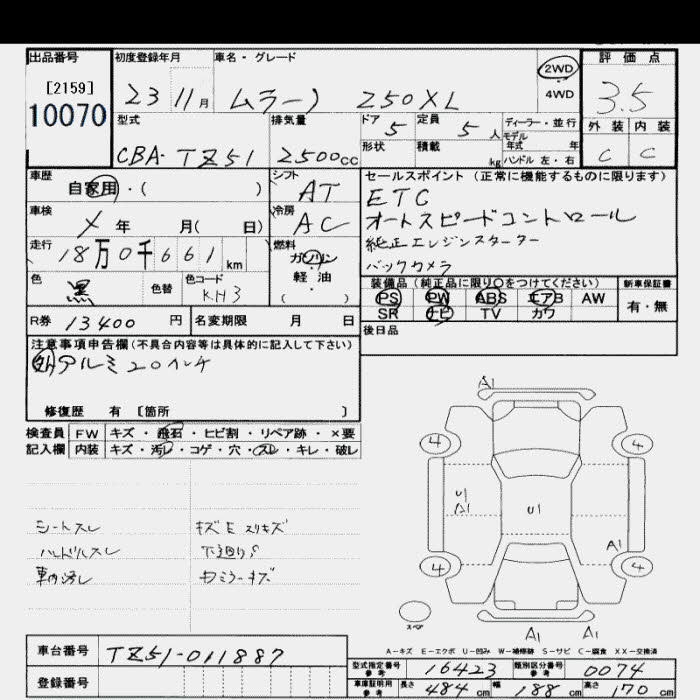 出品番号 初度登録年月 車名・グレード 2WD 評価点
[2159] 23 11月 ムラーノ 250XL 4WD 3.5
10070
型式 排気量 ドア 5 定員 5 人 ディーラー・並行 外装 内装
CBA-TZ51 2500cc 形状 積載 kg モデル年式 年 ハンドル 左・右 C C
車歴 自家用・( ) シフト AT セールスポイント (正常に機能するものに限ります)
ETC
車検 メ 年 月( 日) 冷房 AC オートスピードコントロール
走行 18万0千661km 燃料 ガソリン 純正エンジンスターター
軽・油 バックカメラ
色 黒 色替 色コード KH3 ( )
装備品 (純正品に限り〇をつけてください) 新車保証書
PS PW ABS エアB AW 有・無
R券 13400 円 名変期限 月 日 SR ナビ TV カワ
注意事項申告欄(不具合内容等は具体的に記入して下さい) 後日品
外 アルミ20インチ
修復歴 有 [箇所 ]
検査員 FW キズ・飛石・ヒビ割・リペア跡・×要
記入欄 内装 キズ・汚レ・コゲ・穴・スレ・キレ・破レ
A1
4 4
U1 A1 U1
シートスレ キズE スリキズ
ハンドルスレ 下廻りS A1
車内汚レ 4 4
スペア
A1 A1
A-キズ E-エクボ U-凹み W-補修跡 S-サビ C-腐食 XX-交換済
車台番号 TZ51-011887
型式指定番号 参考 16423 類別区分番号 参考 0074
登録番号 車庫証明用 参考 長さ 484cm 幅 188cm 高さ 170cm